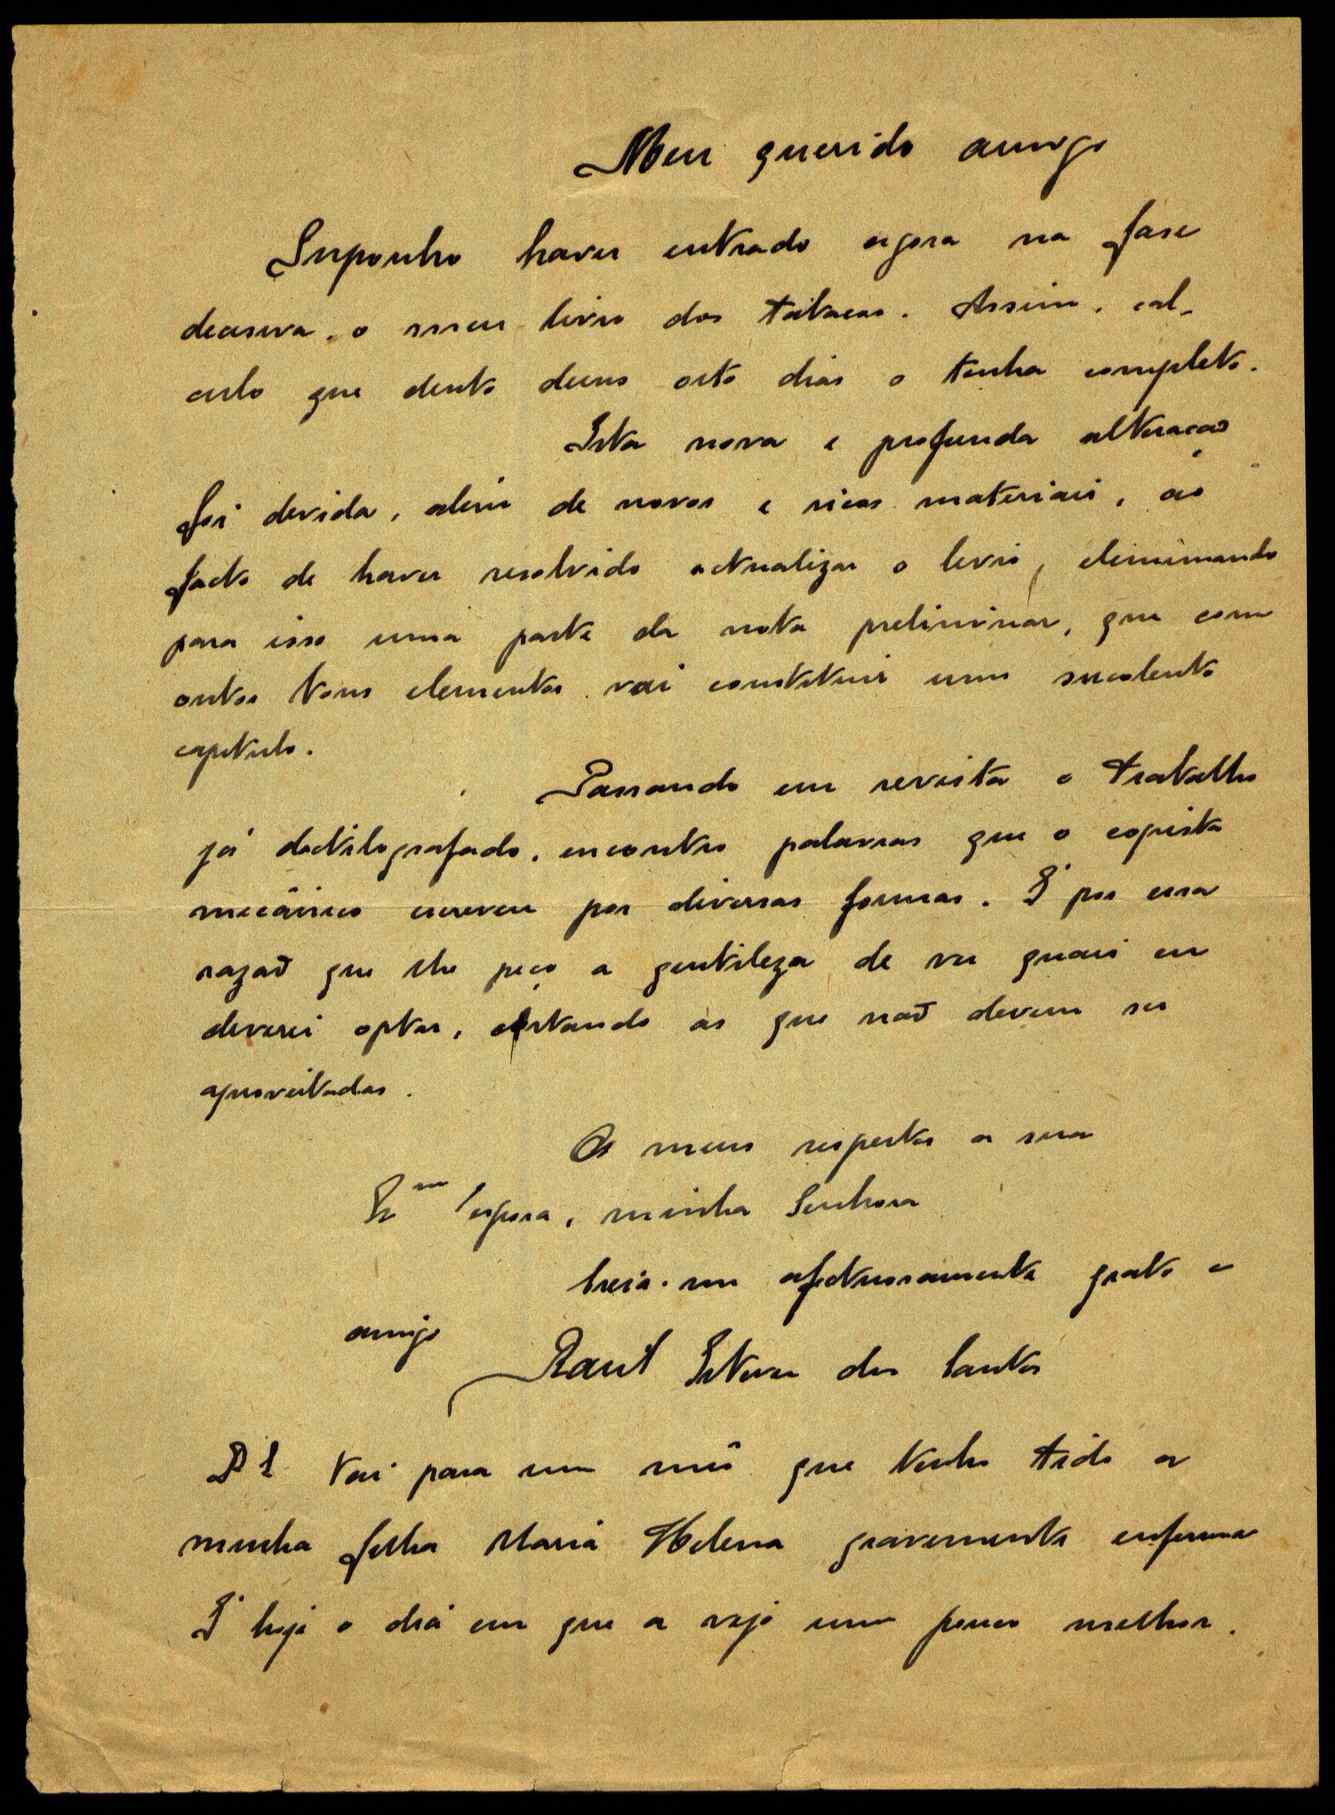 Meu querido amigo
Suponho haver entrado agora na fase
decisiva, o meu livro dos tabacos. Assim, cal-
culo que dentro duns oito dias o tenha completo.
Esta nova e profunda alteração
foi devida, além de novos e ricos materiais, ao
facto de haver resolvido actualizar o livro, eliminando
para isso uma parte da nota preliminar, que com
outros bons elementos vai constituir um suculento
capitulo.
Passando em revista o trabalho
já dactilografado, encontro palavras que o copista
mecânico escreveu por diversas formas. É por essa
razão que lhe peço a gentileza de ver quais eu
deverei optar, cortando as que não devem ser
aproveitadas.
Os meus respeitos a sua
Exma Esposa, minha Senhora
Creia-me afectuosamente grato e
amigo
Raul Esteves dos Santos
PS Vai para um mês que tenho tido a
minha filha Maria Helena gravemente enferma
É hoje o dia em que a vejo um pouco melhor.